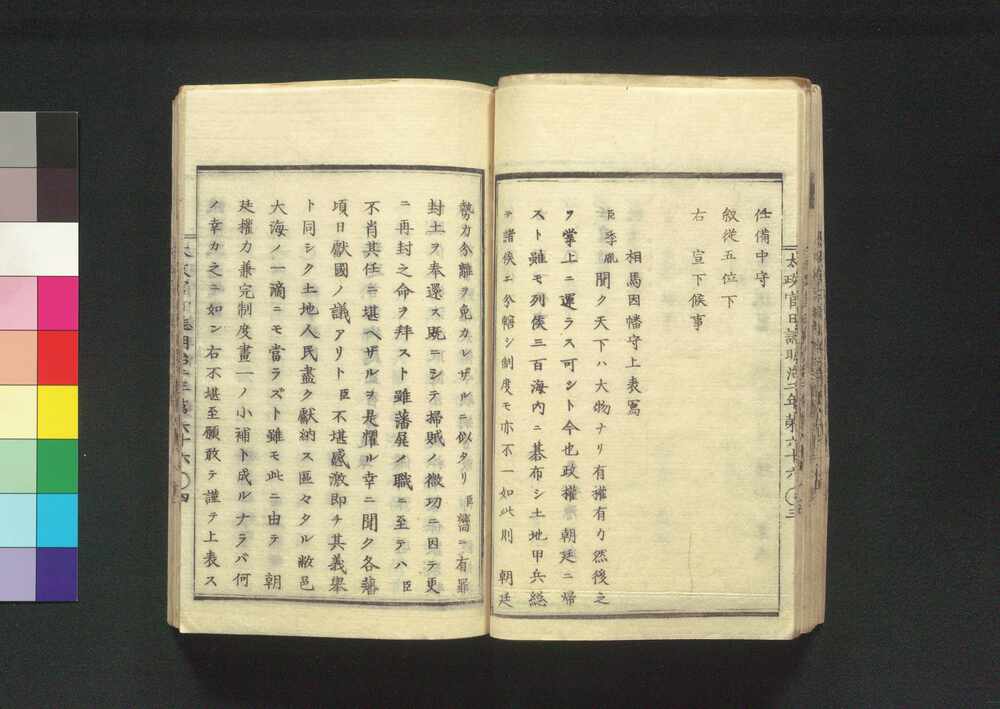 任備中守
叙従五位下
右　宣下候事
相馬因幡守上表写
臣季胤聞ク天下ハ大物ナリ有權有力然後之
ヲ掌上ニ運ラス可シト今也政權朝廷ニ帰
スト雖モ列侯三百海内ニ碁布シ土地甲兵総
テ諸侯ニ分轄シ制度モ亦不一如此則　朝廷
太政官日誌明治二年第六十六　〇三
勢力分離ヲ免カレザルニ似タリ臣嚮ニ有罪
封土ヲ奉還ス既ニシテ掃賊ノ微功ニ因テ更
ニ再封之命ヲ拜スト雖藩屏ノ職ニ至テハ臣
不肖其任ニ堪ヘザルヲ是懼ル幸ニ聞ク各藩
頃日獻國ノ議アリト臣不堪感激即チ其義擧
ト同シク土地人民盡ク獻納ス區々タル敝邑
大海ノ一滴ニモ當ラズト雖モ此ニ由テ　朝
廷權力兼完制度畫一ノ小補ト成ルナラバ何
ノ幸カ之ニ如ン右不堪至願敢テ謹テ上表ス
太政官日誌明治二年第六十六　〇四